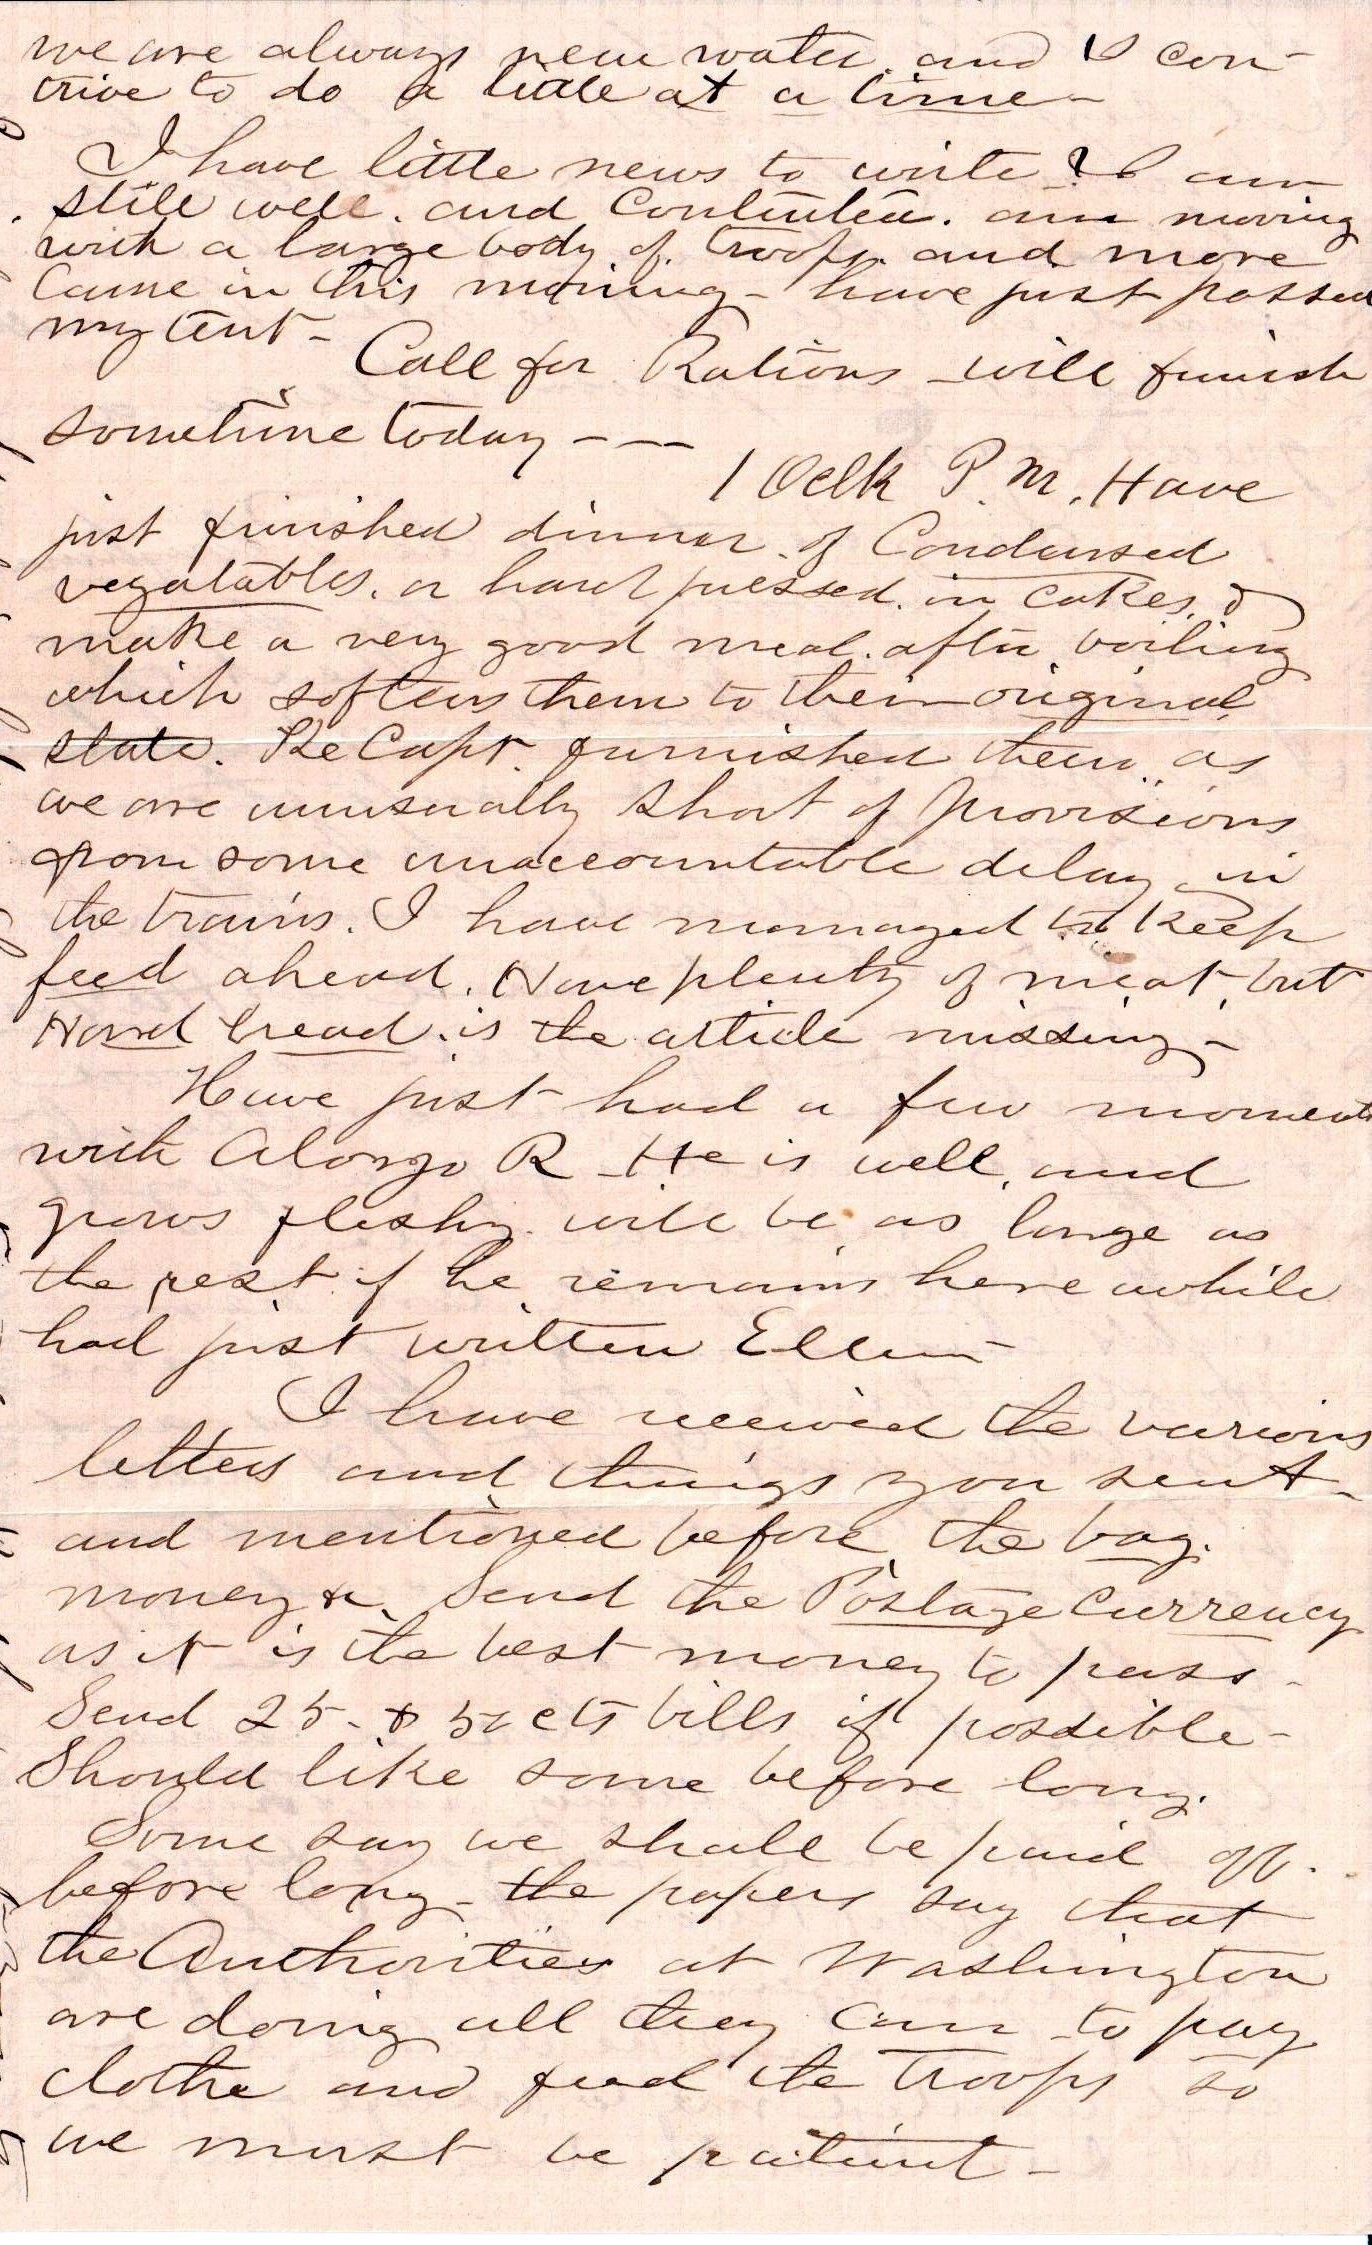 we are always near water, and I con-
trive to do a little at a time -
I have little news to write I am
still well. and Contented. am moving
with a large body of. troops. and more
Came in this morning - have just passed
my tent -
Call for Rations - will finish
sometime today - - -
1 Oclk P. M. Have
just finished dinner. of Condensed
vegatables. hard pressed. in cakes. &
make a very good meal. after boiling
which softens them to their original
state. The Capt. furnished them. as
we are unusually short of provisions
from some unaccountable delay in
the trains. I have managed to keep
feed ahead. Have plenty of meat. but
Hard bread. is the article missing -
Have just had a few moments
with Alonzo R - He is well, and
grows fleshy. will be as large as
the rest if he remains here awhile
had just written Ellen -
I have received the various
letters and things you sent -
and mentioned before the bag.
money &c. Send the Postage Currency
as it is the best money to pass -
Send 25 - & 50 cts bills if possible -
Should like some before long.
Some say we shall be paid off.
before long - the papers say that
the Authorities at Washington
are doing all they can to pay
clothe and feed the troops so
we must be patient -